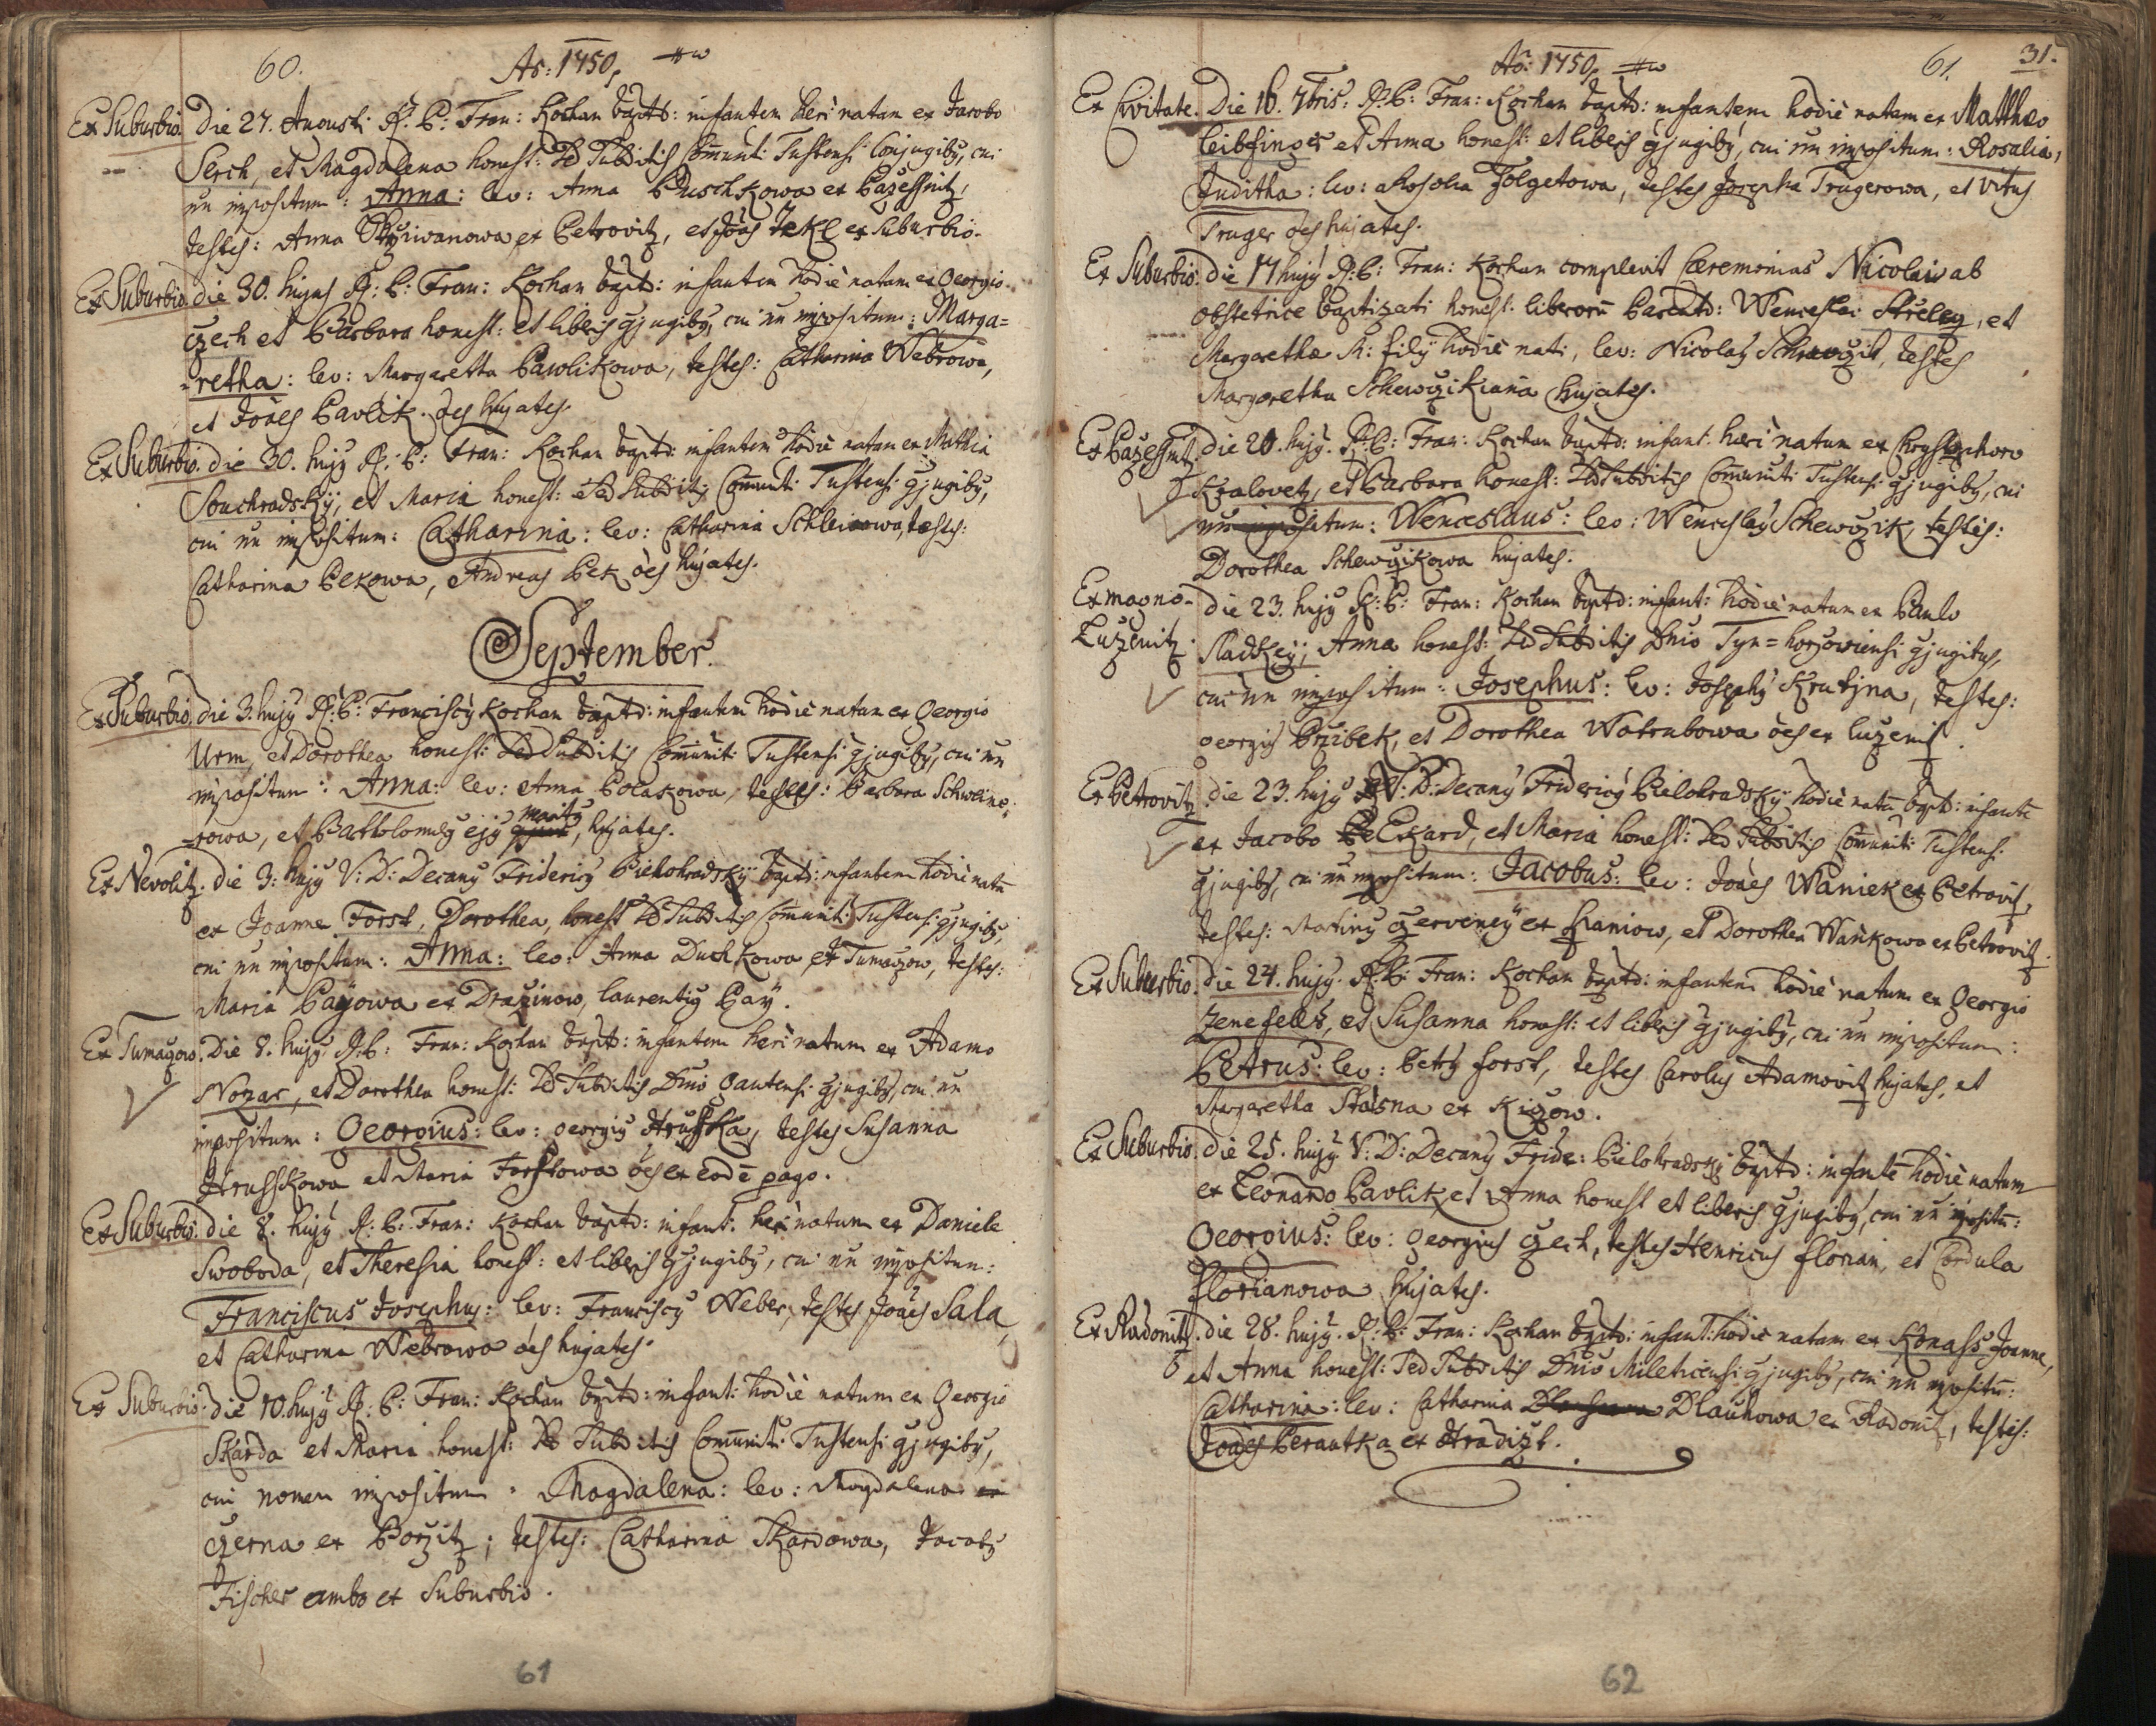 60.
Aō: 1750,
Ex Suburbio. Die 27. Augusti R: P: Fran: Kochan baptd: infantem heri natam ex Jacobo
Serch, et Magdalena honest: sed Subditis Com̄unit: Tustensi Conjugibꝫ, cui
nn̄ impositum: Anna: lev: Anna Duschkowa ex Bażessnitz,
testes: Anna Skřiwanowa ex Petrovitz, et Joāes Jekl ex Suburbio.
Ex Suburbio. die 30. hujus R: P: Fran: Kochan baptd: infantem hodiè natam ex Georgio
Czech et Barbara honest: et liberis Cjugibꝫ, cui nn̄ impositum: Marga=
=retha: lev: Margaretta Pawlikowa, testes: Catharina Webrowa,
et Joāes Pavlik. ōes hujates.
Ex Suburbio. die 30. hujꝫ R: P: Fran: Kochan baptd: infantem hodiè natam ex Mathia
Souchradskÿ, et Maria honest: sed Subditis Com̄unit: Tustensi Cjugibꝫ,
cui nn̄ impositum: Catharina: lev: Catharina testes:
Catharina Pekowa, Andreas Pek ōes hujates.
September.
Ex Suburbio. die 3. hujꝫ R: P: Franciscꝫ Kochan baptd: infantem hodiè natam ex Georgio
Urm, et Dorothea honest: sed Subditis Com̄unit: Tustensi Cjugibꝫ, cui nn̄
impositum: Anna: lev: Anna Polakowa, testes: Barbara Schweine=
=rowa, et Bartholomeꝫ ejꝫ maritꝫ, hujates.
Ex Nevolitz. die 3: hujꝫ V: D: Decanꝫ Fridericꝫ Bielohradskÿ baptd: infantem hodiè natā
ex Joanne Forst, Dorothea, honest sed Subditis Com̄unit: Tustensi Cjugibꝫ,
cui nn̄ impositum: Anna: lev: Anna Duchkowa ex Tumaczow, testes:
Maria Paÿowa ex Drażinow, laurentiꝫ Paÿ.
Ex Tumaczow. Die 8. hujꝫ R: P: Fran: Kochan baptd: infantem heri natum ex Adamo
Nozar, et Dorothea honest: sed Subditis Dnio Gautensi Cjugibꝫ, cui nn̄
impositum: Georgius: lev: Georgiꝫ Hrusska, testes Susanna
Hrusskowa et Maria Forstowa ōes ex eodē pago.
Ex Suburbio. die 8. hujꝫ R: P: Fran: Kochan baptd: infant: heri natum ex Daniele
Swoboda, et Theresia honest: et liberis Cjugibꝫ, cui nn̄ impositum:
Franciscus Josephus: lev: Franciscꝫ Weber, testes Joāes Sala,
et Catharina Webrowa ōes hujates.
Ex Suburbio. die 10. hujꝫ R: P: Fran: Kochan baptd: infant: hodiè natam ex Georgio
Skarda et Maria honest: sed Subditis Com̄unit: Tustensi Cjugibꝫ,
cui nomen impositum: Magdalena: lev: Magdalena
Czerna ex Borzitz; testes: Catharina Skardowa, Jacobꝫ
Fischer ambo ex Suburbio.
61
Aō: 1750,
61.
31.
Ex Civitate. Die 16. 7bris: R: P: Fran: Kochan baptd: infantem hodiè natam ex Matthæo
Leibfinger et Anna honest: et liberis Cjugibꝫ, cui nn̄ impositum: Rosalia,
Juditha: lev: Rosalia Folgetowa, testes Josepha Trugerowa, et Vitus
Truger ōes hujates.
Ex Suburbio. die 17 hujꝫ R: P: Fran: Kochan complevit Cæremonias Nicolai ab
obstetrice baptizati honest: liberorū Parentū: Wenceslai Střeleg, et
Margarethæ M: filÿ hodiè nati, lev: Nicolaꝫ testes
Margaretha Schewczikiana hujates.
Ex Bażessnitz. die 20. hujꝫ. R: P: Fran: Kochan baptd: infant: hæri natum ex Chrystophoro
Kralovetz, et Barbara honest: sed Subditis Com̄unit: Tustensi Cjugibꝫ, cui
nn̄ impositum: Wenceslaus: lev: Wenceslaꝫ Schewczik, testes:
Dorothea Schewczikowa hujates.
Ex magno- die 23. hujꝫ R: P: Fran: Kochan baptd: infant: hodiè natum ex Paulo
Lużenitz. Sladkeÿ, Anna honest: sed Subditis Dnio Tyn=horssowiensi Cjugibus,
cui nn̄ impositum: Josephus: lev: Josephꝫ Krutjna, testes:
Georgius Przibek, et Dorothea Watrubowa ōes ex Lużenitz.
Ex Petrovitz. die 23. hujꝫ V: D: Decanꝫ Fridericꝫ Bielohradskÿ hodiè natū baptd: infantē
ex Jacobo Ekard, et Maria honest: sed Subditis Com̄unit: Tustensi
Cjugibꝫ, cui nn̄ impositum: Jacobus: lev: Joāes Waniek ex Petrovitz,
testes: Martinꝫ Czerveneÿ ex Hraniow, et Dorothea Wankowa ex Petrovitz.
Ex Suburbio. die 24. hujꝫ. R: P: Fran: Kochan baptd: infantem hodiè natum ex Georgio
Zenefells, et Susanna honest: et liberis Cjugibꝫ, cui nn̄ impositum:
Petrus: lev: Petrꝫ Forst, testes Carolus Adamovitz hujates, et
Margaretha Stasna ex Kiczow.
Ex Suburbio. die 25. hujꝫ V: D: Decanꝫ Fride: Bielohradskÿ baptd: infantē hodiè natum
ex Leonardo Pavlik et Anna honest et liberis Cjugibꝫ, cui nn̄ impositū:
Georgius: lev: Georgius Czech, testes Henricus Florian, et Cordula
Florianowa hujates.
Ex Radonitz. die 28. hujꝫ. R: P: Fran: Kochan baptd: infant: hodiè natam ex Konass Joanne,
et Anna honest: sed Subditis Dnio Mileticensi Cjugibꝫ, cui nn̄ impositū:
Catharina: lev: Catharina Dlauhowa ex Radonitz, testes:
Joāes Berautka ex Hradizt.
62